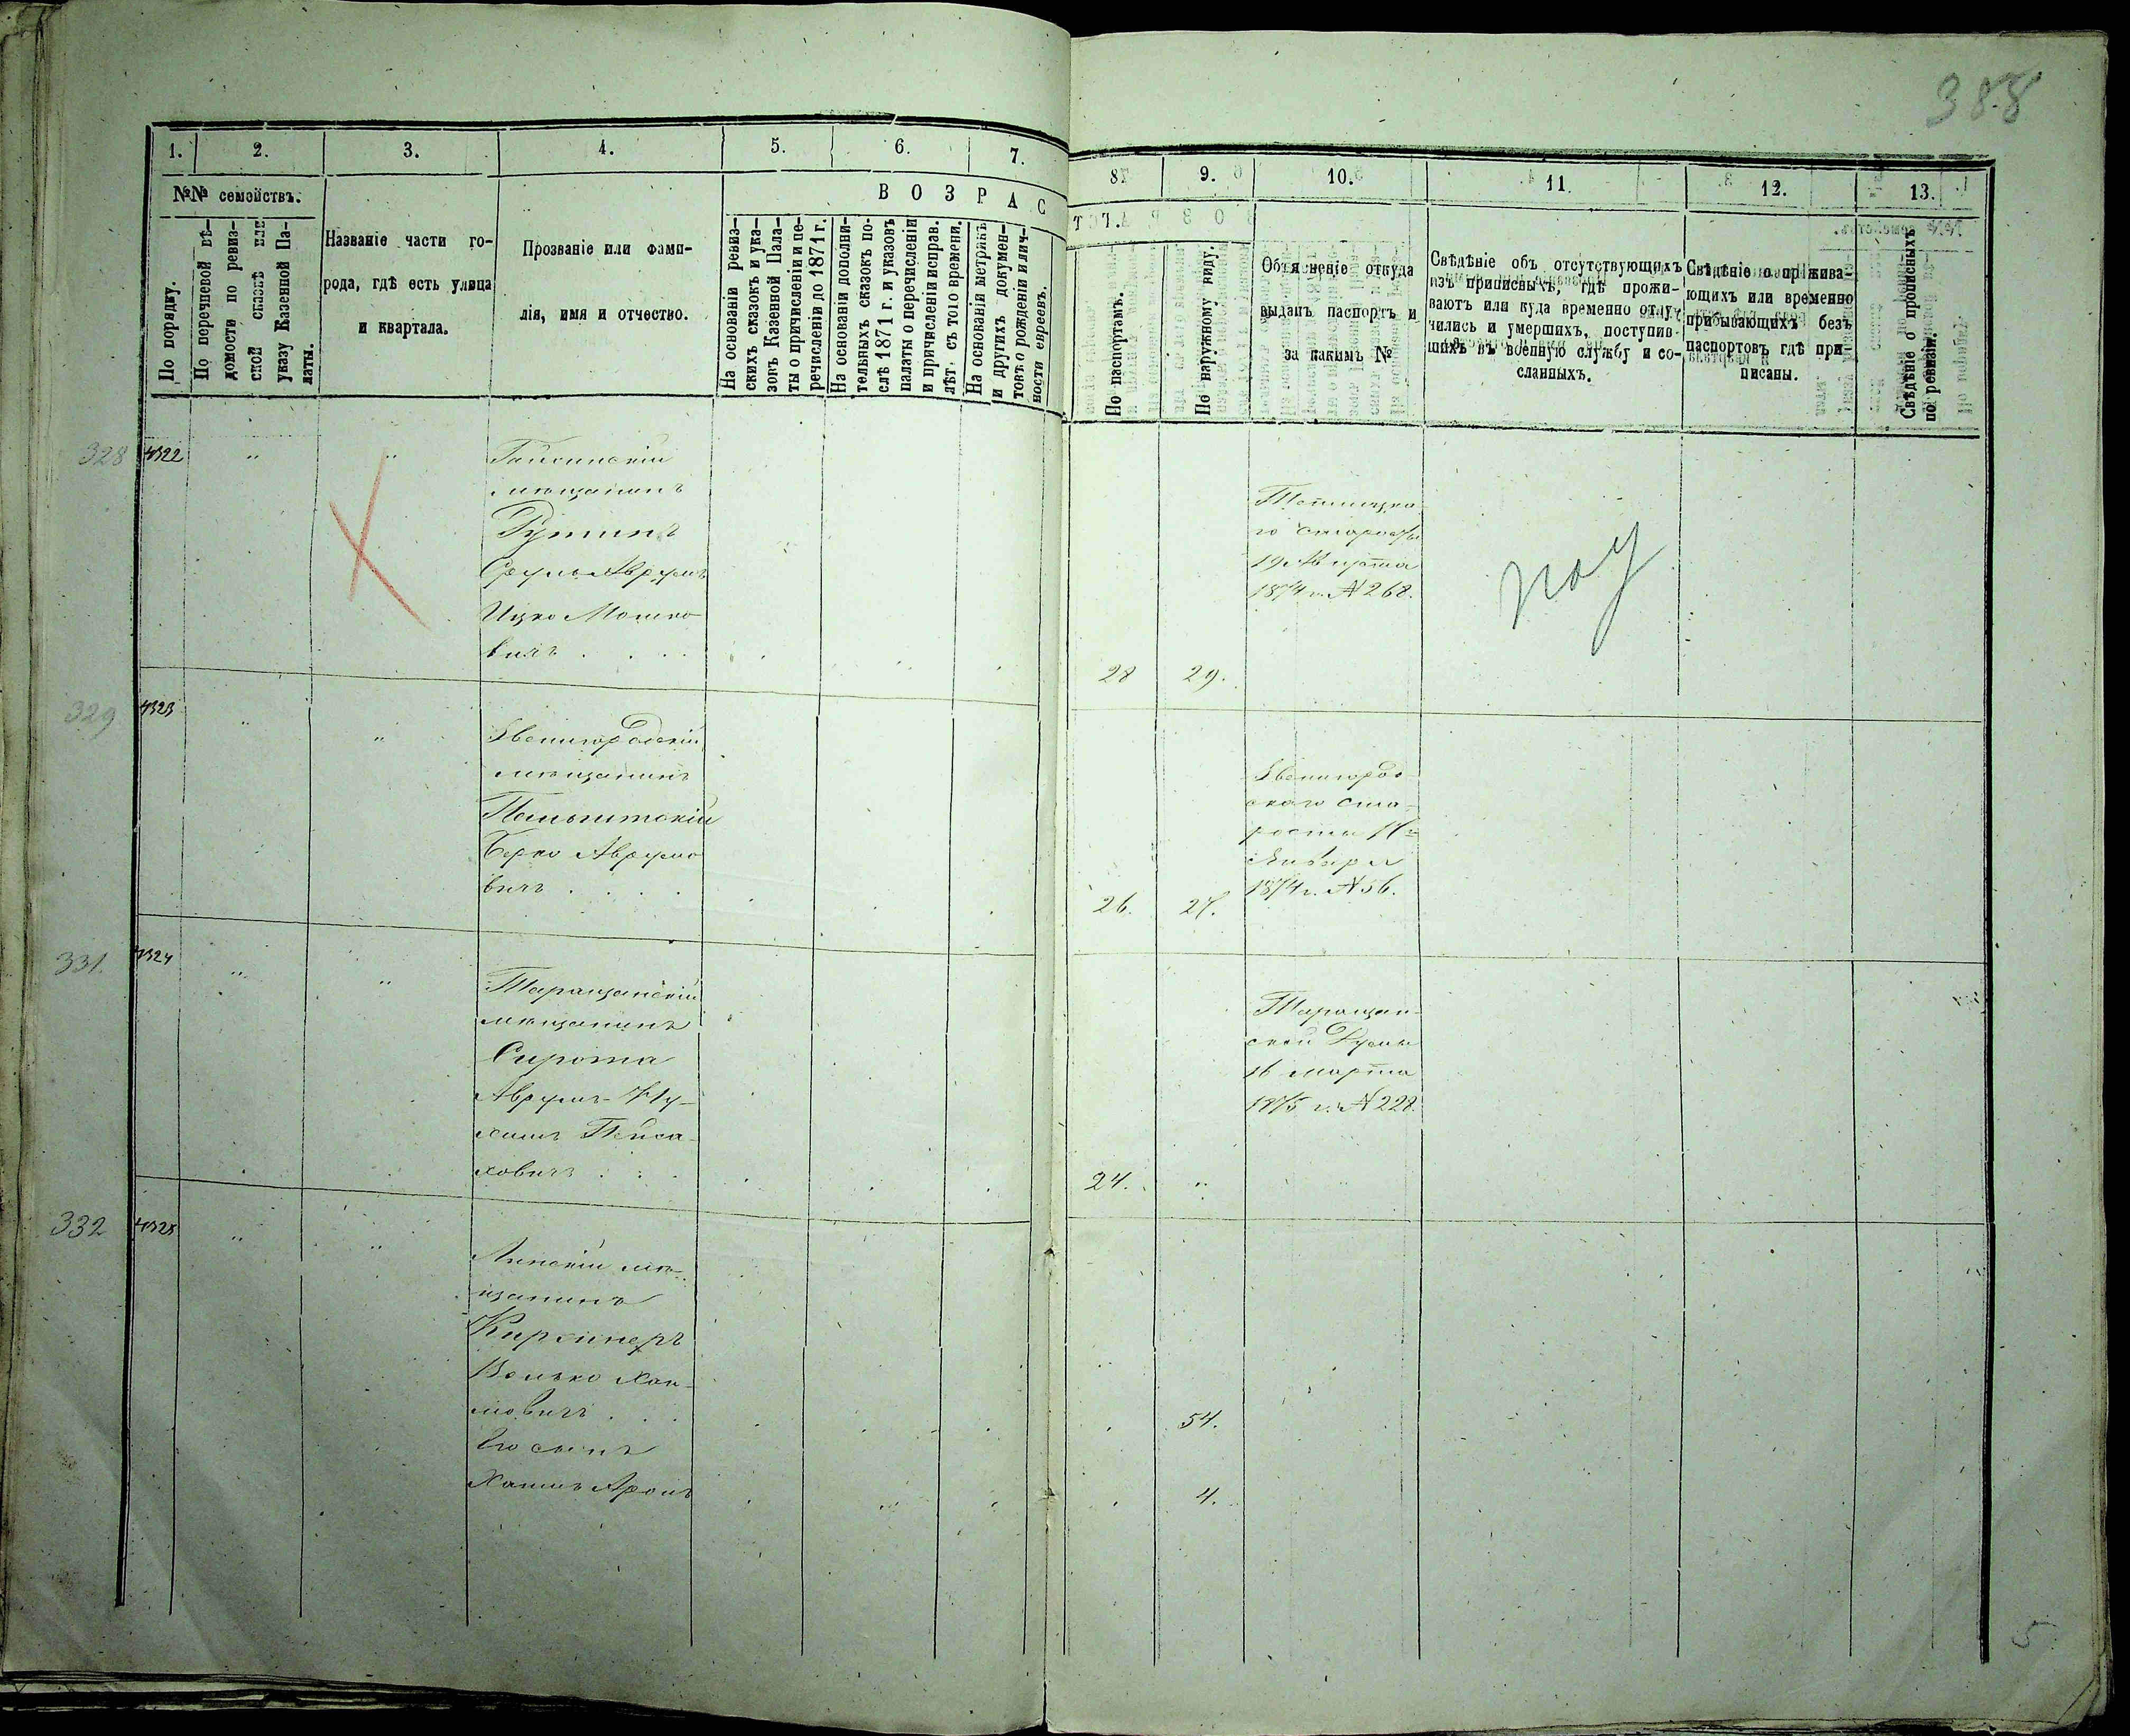 388
1. 2. 3. 4. 5. 6. 7.
8. 9. 10. 11. 12. 13.
№№ семействъ.
По порядку.
По перечневой вѣ-
домости по ревиз-
ской сказкѣ или
указу Казенной Па-
латы.
Названіе части го-
рода, гдѣ есть улица
и квартала.
Прозваніе или фами-
лія, имя и отчество.
ВОЗРАС
ТЪ.
На основаніи ревиз-
скихъ сказокъ и ука-
зовъ Казенной Пала-
ты о причисленіи и пе-
речисленіи до 1871 г.
На основаніи дополни-
тельныхъ сказокъ по-
слѣ 1871 г. и указовъ
палаты о перечисленіи
и причисленіи исправ.
лѣт. съ того времени.
На основаніи метрикъ
и другихъ докумен-
товъ о рожденіи и лич-
ности евреевъ.
По паспортамъ.
По наружному виду.
Объясненіе откуда
выданъ паспортъ и
за какимъ №
Свѣдѣніе объ отсутствующихъ
изъ приписныхъ, гдѣ прожи-
ваютъ или куда временно отлу-
чились и умершихъ, поступив-
шихъ въ военную службу и со-
сланныхъ.
Свѣдѣніе о прожива-
ющихъ или временно
пребывающихъ безъ
паспортовъ гдѣ при-
писаны.
Свѣдѣніе о прописныхъ
по ревизіи.
328 4322
Гайсинскій
мѣщанинъ
Гутинъ
Сруль Аврумъ
Ицко Мошко-
вичъ
28 29.
го старосты
19 Августа
1874 г. № 268.
329 4323
Звенигородскій
мѣщанинъ
Берко Аврумо-
вичъ
26. 27.
Звенигород-
скаго ста-
росты 17
Января
1874 г. № 56.
331. 4324
Таращанскій
мѣщанинъ
Сирота
Аврумъ-Ну-
химъ Пейса-
ховичъ
24.
Таращан-
ской Думы
16 марта
1875 г. № 228.
332 4325
мѣ-
щанинъ
Киржнеръ
Волько Хаи-
мовичъ
54.
Его сынъ
Хаимъ Аронъ
4.
5